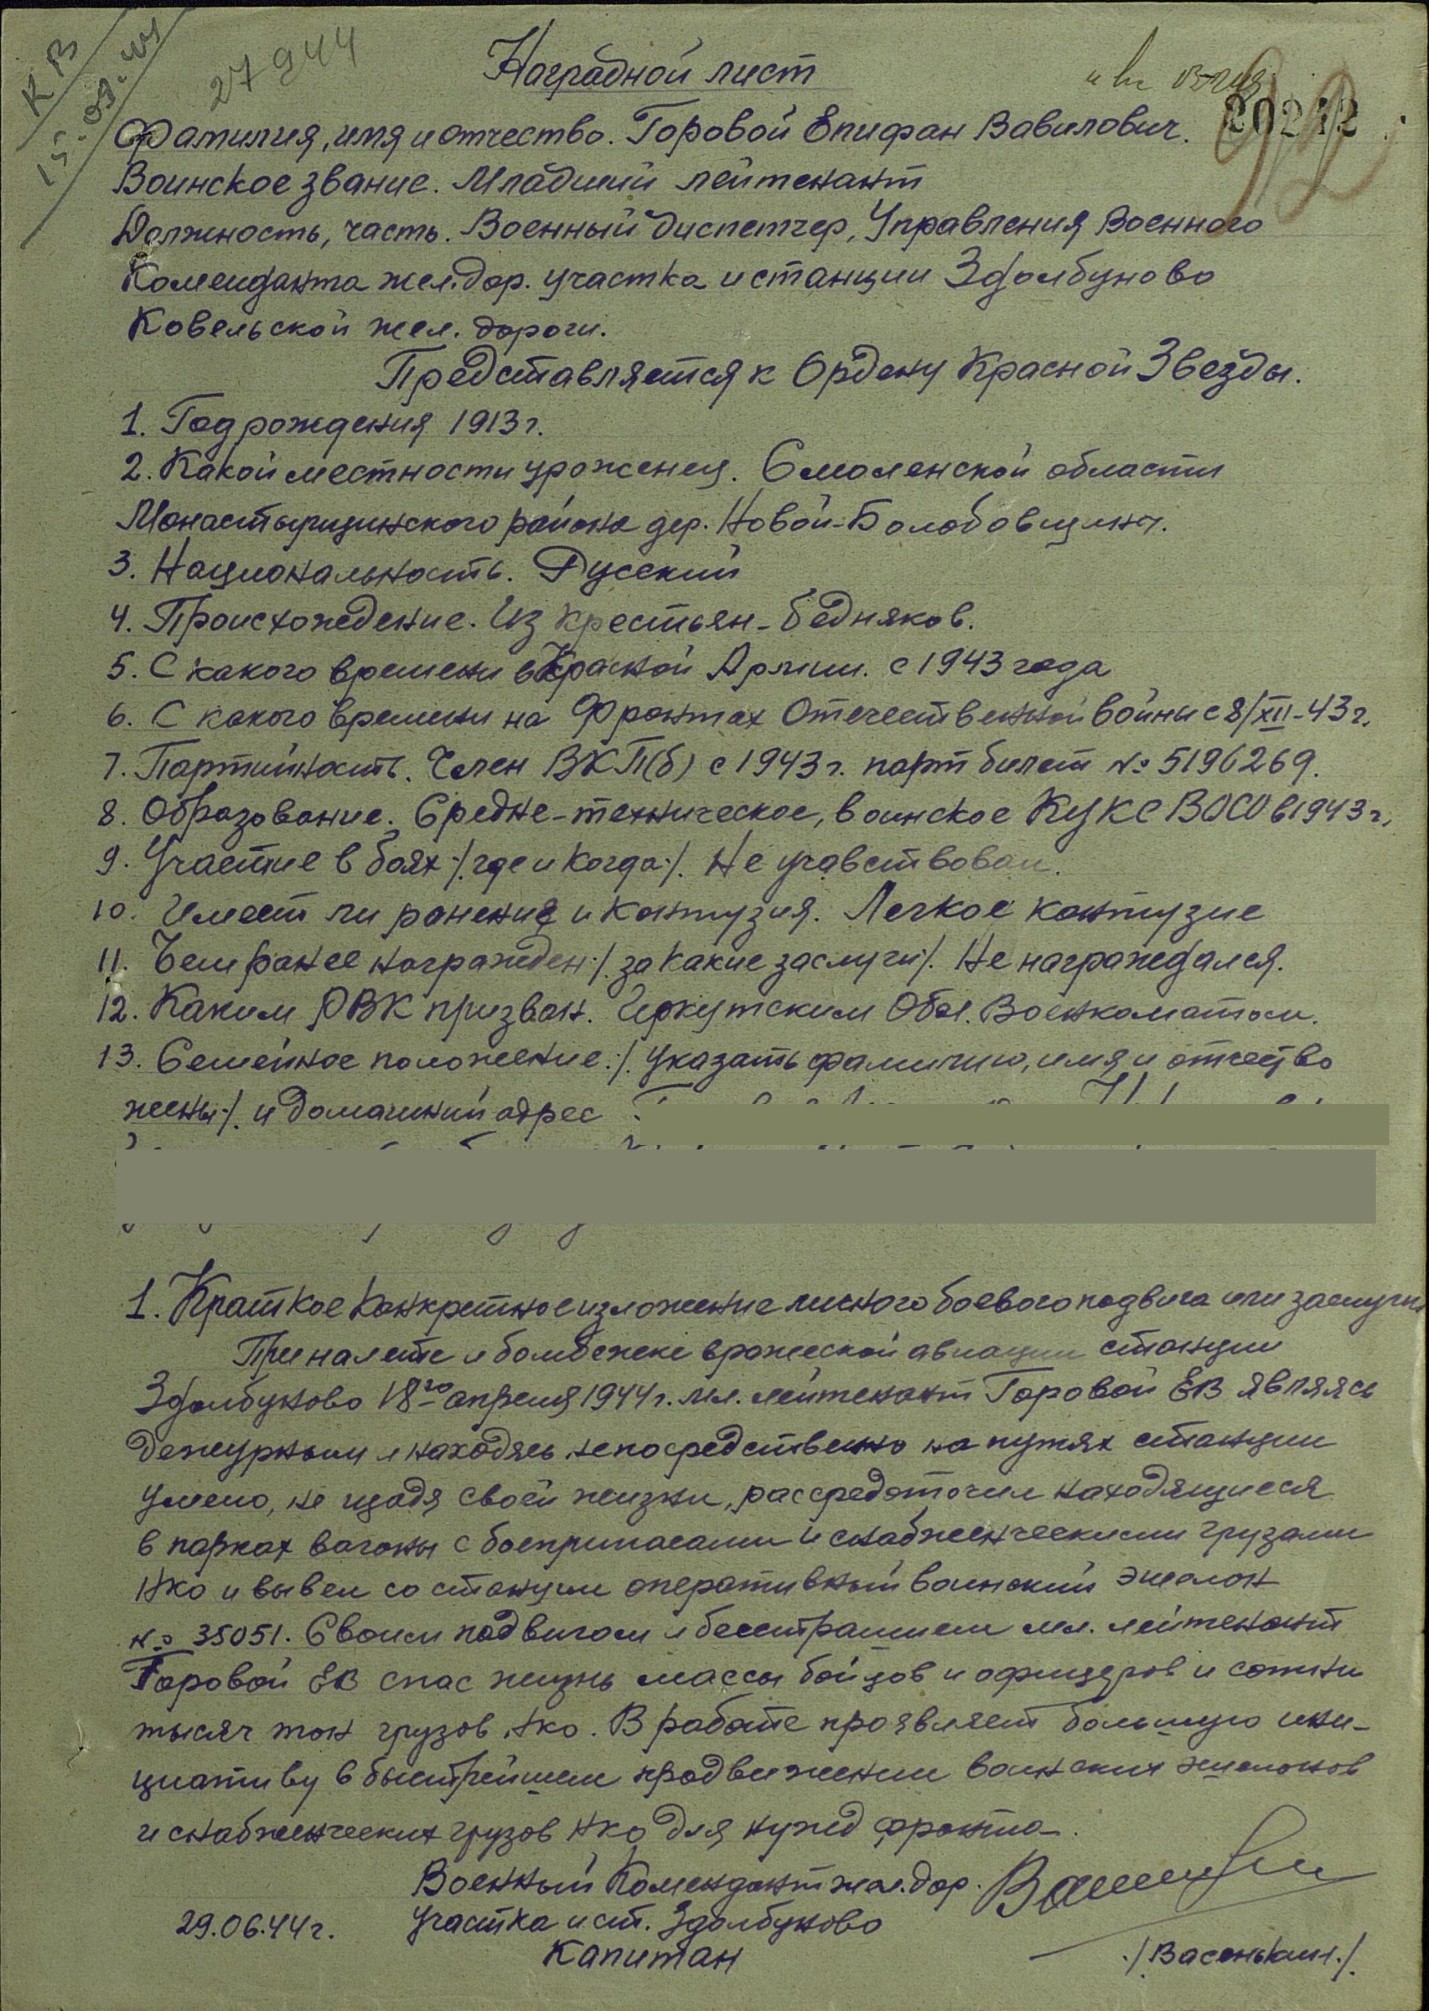 КВ
15.09.44
27944
Наградной лист
20212
92
Фамилия, имя и отчество. Горовой Епифан Вавилович.
Воинское звание. Младший лейтенант
Должность, часть. Военный диспетчер, Управления Военного
Коменданта жел.дор. участка и станции Здолбуново
Ковельской жел. дороги.
Представляется к Ордену Красной Звезды.
1. Год рождения 1913 г.
2. Какой местности уроженец. Смоленской области
Монастырщинского района дер. Новой-Болобовщины.
3. Национальность. Русский
4. Происхождение. Из крестьян-бедняков.
5. С какого времени в Красной Армии. с 1943 года
6. С какого времени на фронтах Отечественной войны с 8/XII-43 г.
7. Партийность. Член ВКП(б) с 1943 г. парт билет № 5196269.
8. Образование. Средне-техническое, воинское КУКС ВОСО в 1943 г.
9. Участие в боях ./. где и когда ./. Не учавствовал.
10. Имеет ли ранения и контузия. Легкое контузие
11. Чем ранее награжден ./. за какие заслуги ./. Не награждался.
12. Каким РВК призван. Иркутским Обл. Военкоматом.
13. Семейное положение ./. указать фамилию, имя и отчество
жены ./. и домашний адрес
1. Краткое конкретное изложение личного боевого подвига или заслуги
При налете и бомбежке вражеской авиации станции
Здолбуново 18го апреля 1944 г. мл. лейтенант Горовой ЕВ являясь
дежурным и находясь непосредственно на путях станции
умело, не щадя своей жизни, рассредоточил находящиеся
в парках вагоны с боеприпасами и снабженческими грузами
НКО и вывел со станции оперативный воинский эшелон
№ 35051. Своим подвигом и бесстрашием мл. лейтенант
Горовой ЕВ спас жизнь массы бойцов и офицеров и сотни
тысяч тон грузов НКО. В работе проявляет большую ини-
циативу в быстрейшем продвижении воинских эшелонов
и снабженческих грузов НКО для нужд фронта.
Военный Комендант жел.дор.
участка и ст. Здолбуново
29.06.44 г.
Капитан
./Васенькин./.